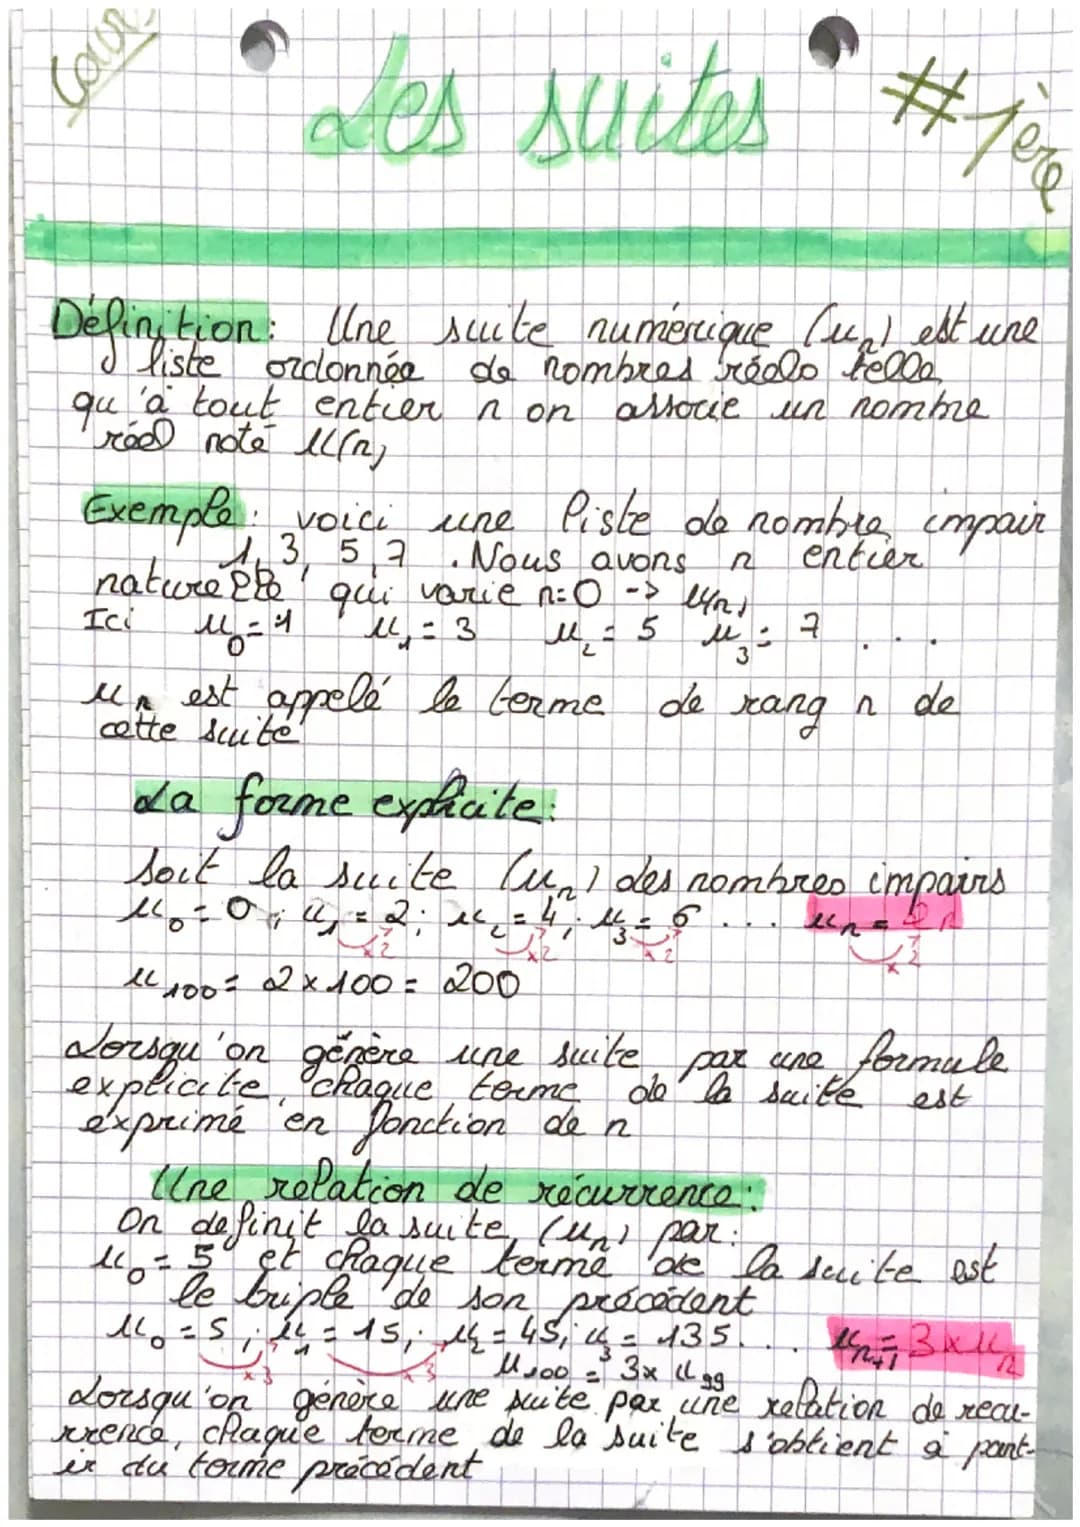 Cours
Les suites
#1ère
Définition: Une suite numérique (un) est une
liste ordonnée de nombres réels telle
qu'à tout entier n on associe un nombre
réel noté u(n)
Exemple: voici une liste de nombre impair
1, 3, 5, 7. Nous avons n entier
naturelle qui varie n=0 -> u(n)
Ici u₀=1 u₁=3 u₂=5 u₃=7 ...
uₙ est appelé le terme de rang n de
cette suite
La forme explicite:
Soit la suite (uₙ) des nombres impairs
u₀=0; u₁=2; u₂=4; u₃=6 ... uₙ=2n
×2 ×2 ×2 ×2
u₁₀₀=2×100=200
Lorsqu'on génère une suite par une formule
explicite, chaque terme de la suite est
exprimé en fonction de n
Une relation de récurrence:
On definit la suite (uₙ) par:
u₀=5 et chaque terme de la suite est
le triple de son précédent
u₀=5; u₁=15; u₂=45; u₃=135... uₙ₊₁=3×uₙ
×3 ×3 u₁₀₀=3×u₉₉
Lorsqu'on génère une suite par une relation de récu-
rrence, chaque terme de la suite s'obtient à part-
ir du terme précédent